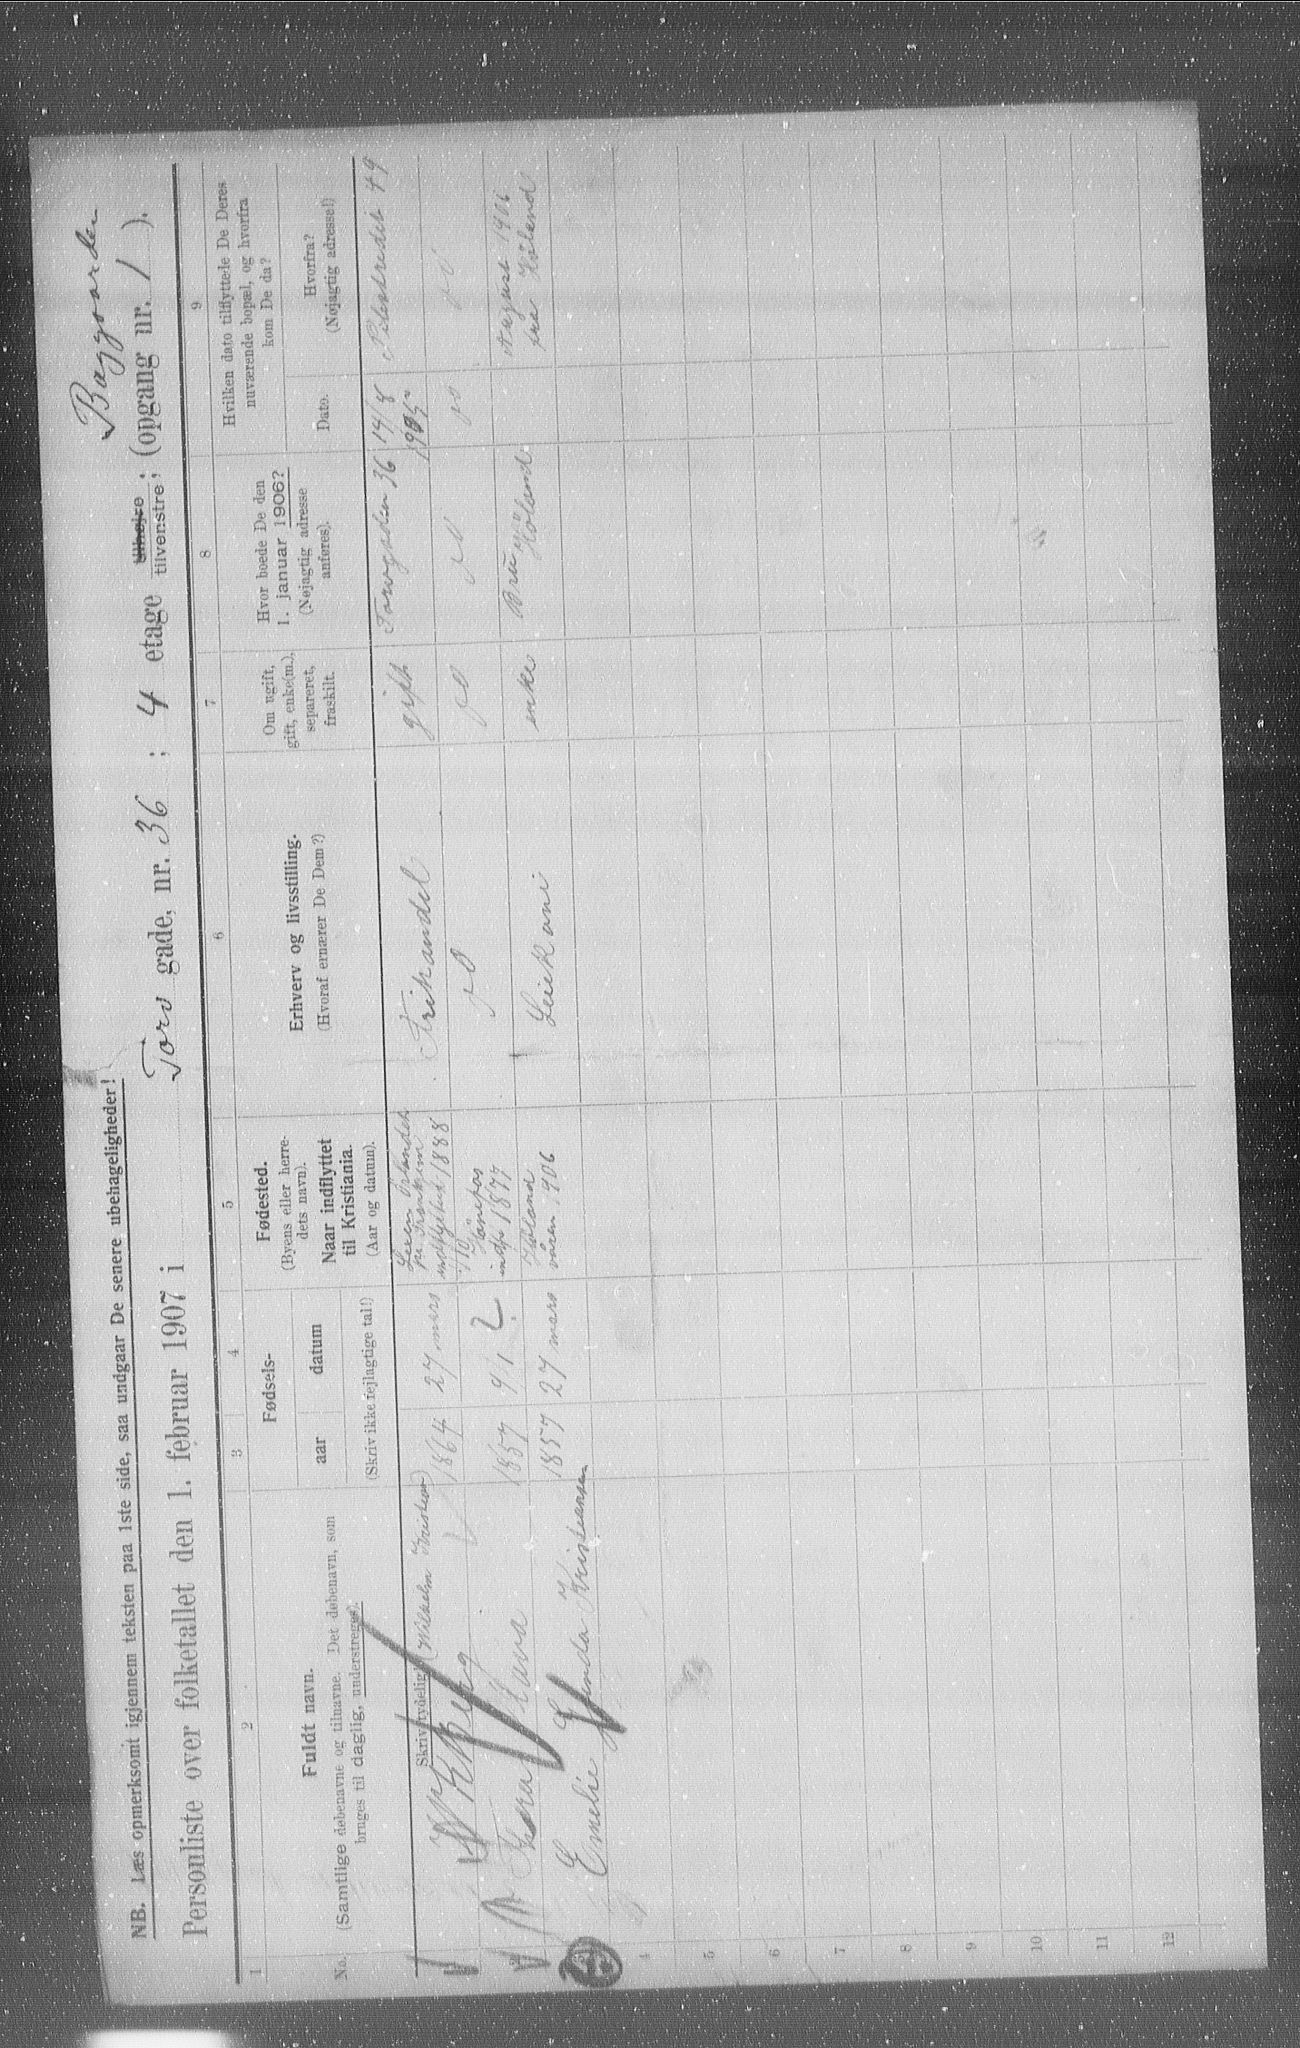 NB. Læs opmerksomt igjennem teksten paa 1ste side, saa undgaar De senere ubehageligheder!
Baggaarden
Personliste over folketallet den 1. februar 1907 i Torv gade, nr. 36 ; 4 etage tilhøjre, tilvenstre; (opgang nr. 1 ).
1 2 3 4 5 6 7 8 9
No.
Fuldt navn.
(Samtlige døbenavne og tilnavne. Det døbenavn, som
bruges til daglig, understreges).
Fødsels-
aar datum
(Skriv ikke fejlagtige tal!)
Fødested.
(Byens eller herre-
dets navn).
Naar indflyttet
til Kristiania.
(Aar og datum).
Erhverv og livsstilling.
(Hvoraf ernærer De Dem?)
Om ugift,
gift, enke(m.),
separeret,
fraskilt.
Hvor boede De den
1. januar 1906?
(Nøjagtig adresse
anføres).
Hvilken dato tilflyttede De Deres
nuværende bopæl, og hvorfra
kom De da?
Dato.
Hvorfra?
(Nøjagtig adresse!)
Skriv tydelig! (Wilhelm Kristian)
W K Berg 1864 27 mars
pr. Trondhjem
indflyttet 1888
Frihandel gift Torvgaden 36 14/8 1905 Pilestredet 49
Thora 1857 9/1
Hönefos
indf. 1877
do do do do do
Emilie Linda Kristiansen 1857 27 mars
Höland
1906
enke
Bru
Höland
August 1906
fra Höland
4
5
6
7
8
9
10
11
12